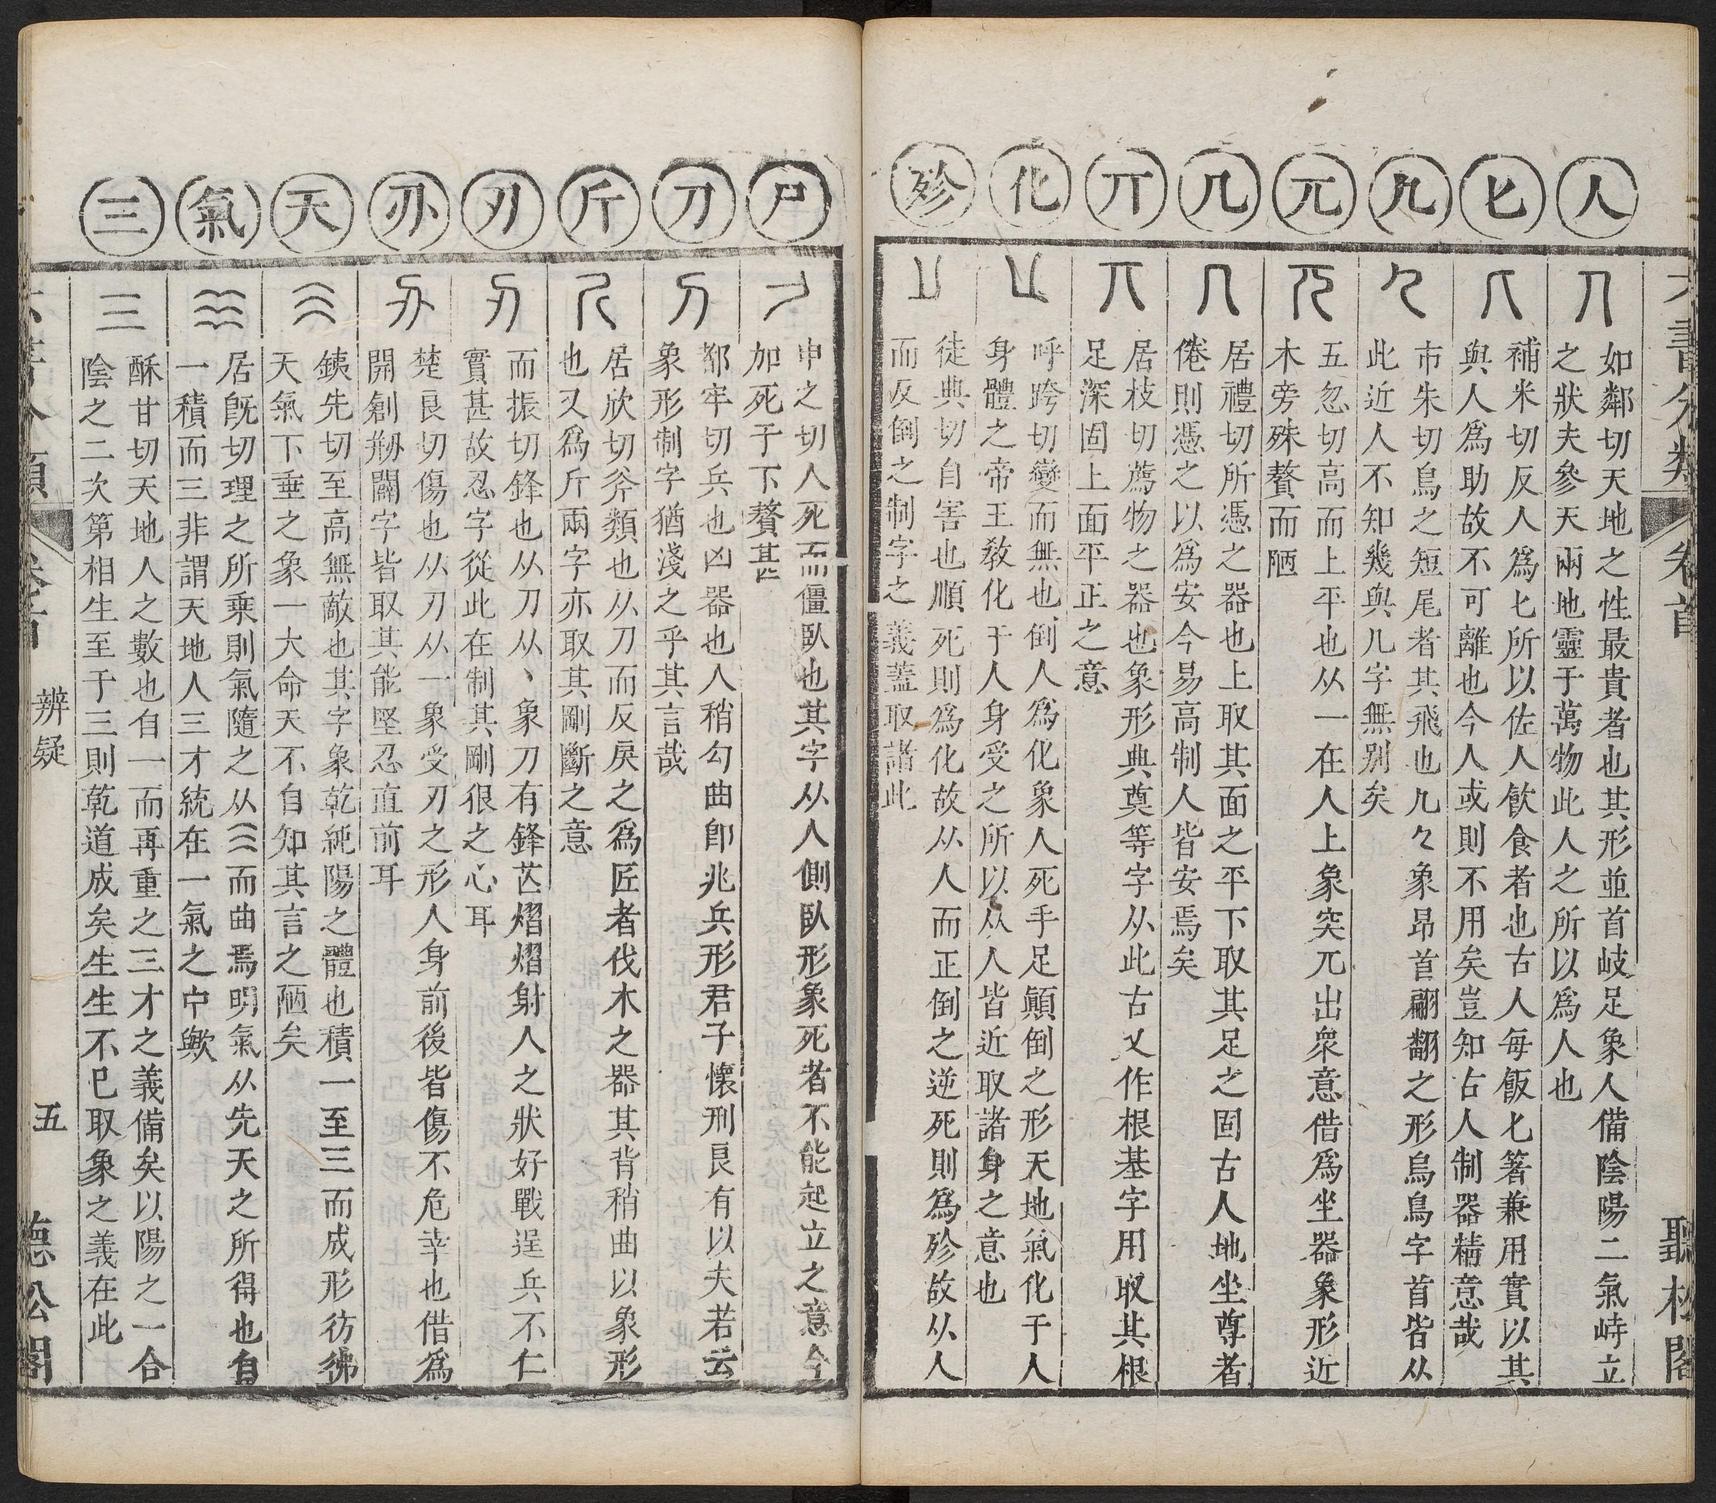 六書分類
卷首
聽松閣
人
如鄰切天地之性最貴者也其形並首岐足象人備陰陽二氣峙立
之狀夫參天兩地靈于萬物此人之所以為人也
匕
補米切反人為匕所以佐人飲食者也古人每飯匕箸兼用實以其
與人為助故不可離也今人或則不用矣豈知古人制器精意哉
市朱切鳥之短尾者其飛也几𠘧象昂首翩翻之形鳥鳥字首皆从
此近人不知幾與几字無別矣
兀
五忽切高而上平也从一在人上象突兀出衆意借為坐器象形近
木旁殊贅而陋
几
居禮切所憑之器也上取其面之平下取其足之固古人地坐尊者
倦則憑之以為安今易高制人皆安焉矣
丌
居枝切薦物之器也象形典奠等字从此古又作根基字用取其根
足深固上面平正之意
化
呼跨切變而無也倒人為化象人死手足顛倒之形天地氣化于人
身體之帝王教化于人身受之所以从人皆近取諸身之意也
殄
徒典切自害也順死則為化故从人而正倒之逆死則為殄故从人
而反倒之制字之義蓋取諸此
尸
申之切人死而僵臥也其字从人側臥形象死者不能起立之意今
加死于下贅甚
刀
都牢切兵也凶器也人稍勾曲卽兆兵形君子懷刑良有以夫若云
象形制字猶淺之乎其言哉
斤
居欣切斧類也从刀而反戾之為匠者伐木之器其背稍曲以象形
也又為斤兩字亦取其剛斷之意
刃
而振切鋒也从刀从丶象刀有鋒芒熠熠射人之狀好戰逞兵不仁
實甚故忍字從此在制其剛很之心耳
刅
楚良切傷也从刃从一象受刃之形人身前後皆傷不危幸也借為
開創剙闢字皆取其能堅忍直前耳
天
鐵先切至高無敵也其字象乾純陽之體也積一至三而成形彷彿
天氣下垂之象一大命天不自知其言之陋矣
氣
居旣切理之所乘則氣隨之从而曲焉明氣从先天之所得也自
一積而三非謂天地人三才統在一氣之中歟
三
酥甘切天地人之數也自一而再重之三才之義備矣以陽之一合
陰之二次第相生至于三則乾道成矣生生不已取象之義在此
辨疑
五